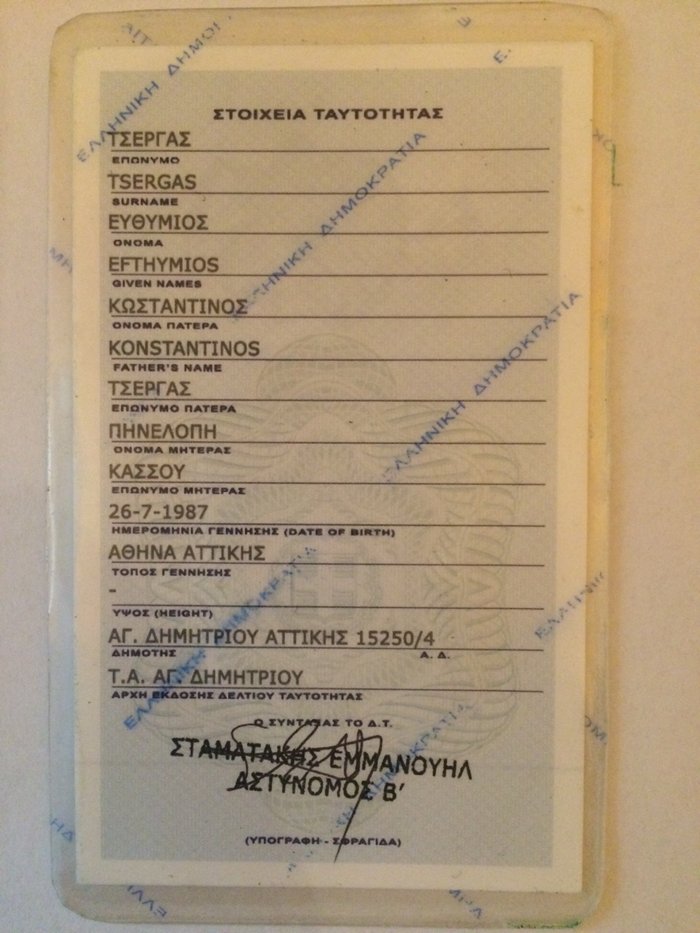 ΣΤΟΙΧΕΙΑ ΤΑΥΤΟΤΗΤΑΣ
ΤΣΕΡΓΑΣ
ΕΠΩΝΥΜΟ
TSERGAS
SURNAME
ΕΥΘΥΜΙΟΣ
ΟΝΟΜΑ
EFTHYMIOS
GIVEN NAMES
ΚΩΣΤΑΝΤΙΝΟΣ
ΟΝΟΜΑ ΠΑΤΕΡΑ
KONSTANTINOS
FATHER'S NAME
ΤΣΕΡΓΑΣ
ΕΠΩΝΥΜΟ ΠΑΤΕΡΑ
ΠΗΝΕΛΟΠΗ
ΟΝΟΜΑ ΜΗΤΕΡΑΣ
ΚΑΣΣΟΥ
ΕΠΩΝΥΜΟ ΜΗΤΕΡΑΣ
26-7-1987
ΗΜΕΡΟΜΗΝΙΑ ΓΕΝΝΗΣΗΣ (DATE OF BIRTH)
ΑΘΗΝΑ ΑΤΤΙΚΗΣ
ΤΟΠΟΣ ΓΕΝΝΗΣΗΣ
-
ΥΨΟΣ (HEIGHT)
ΑΓ. ΔΗΜΗΤΡΙΟΥ ΑΤΤΙΚΗΣ 15250/4
ΔΗΜΟΤΗΣ Α. Δ.
Τ.Α. ΑΓ. ΔΗΜΗΤΡΙΟΥ
ΑΡΧΗ ΕΚΔΟΣΗΣ ΔΕΛΤΙΟΥ ΤΑΥΤΟΤΗΤΑΣ
Ο ΣΥΝΤΑΞΑΣ ΤΟ Δ.Τ.
ΣΤΑΜΑΤΑΚΗΣ ΕΜΜΑΝΟΥΗΛ
ΑΣΤΥΝΟΜΟΣ Β'
(ΥΠΟΓΡΑΦΗ - ΣΦΡΑΓΙΔΑ)
ΕΛΛΗΝΙΚΗ ΔΗΜΟΚΡΑΤΙΑ
ΕΛΛΗΝΙΚΗ ΔΗΜΟΚΡΑΤΙΑ
ΕΛΛΗΝΙΚΗ ΔΗΜΟΚΡΑΤΙΑ